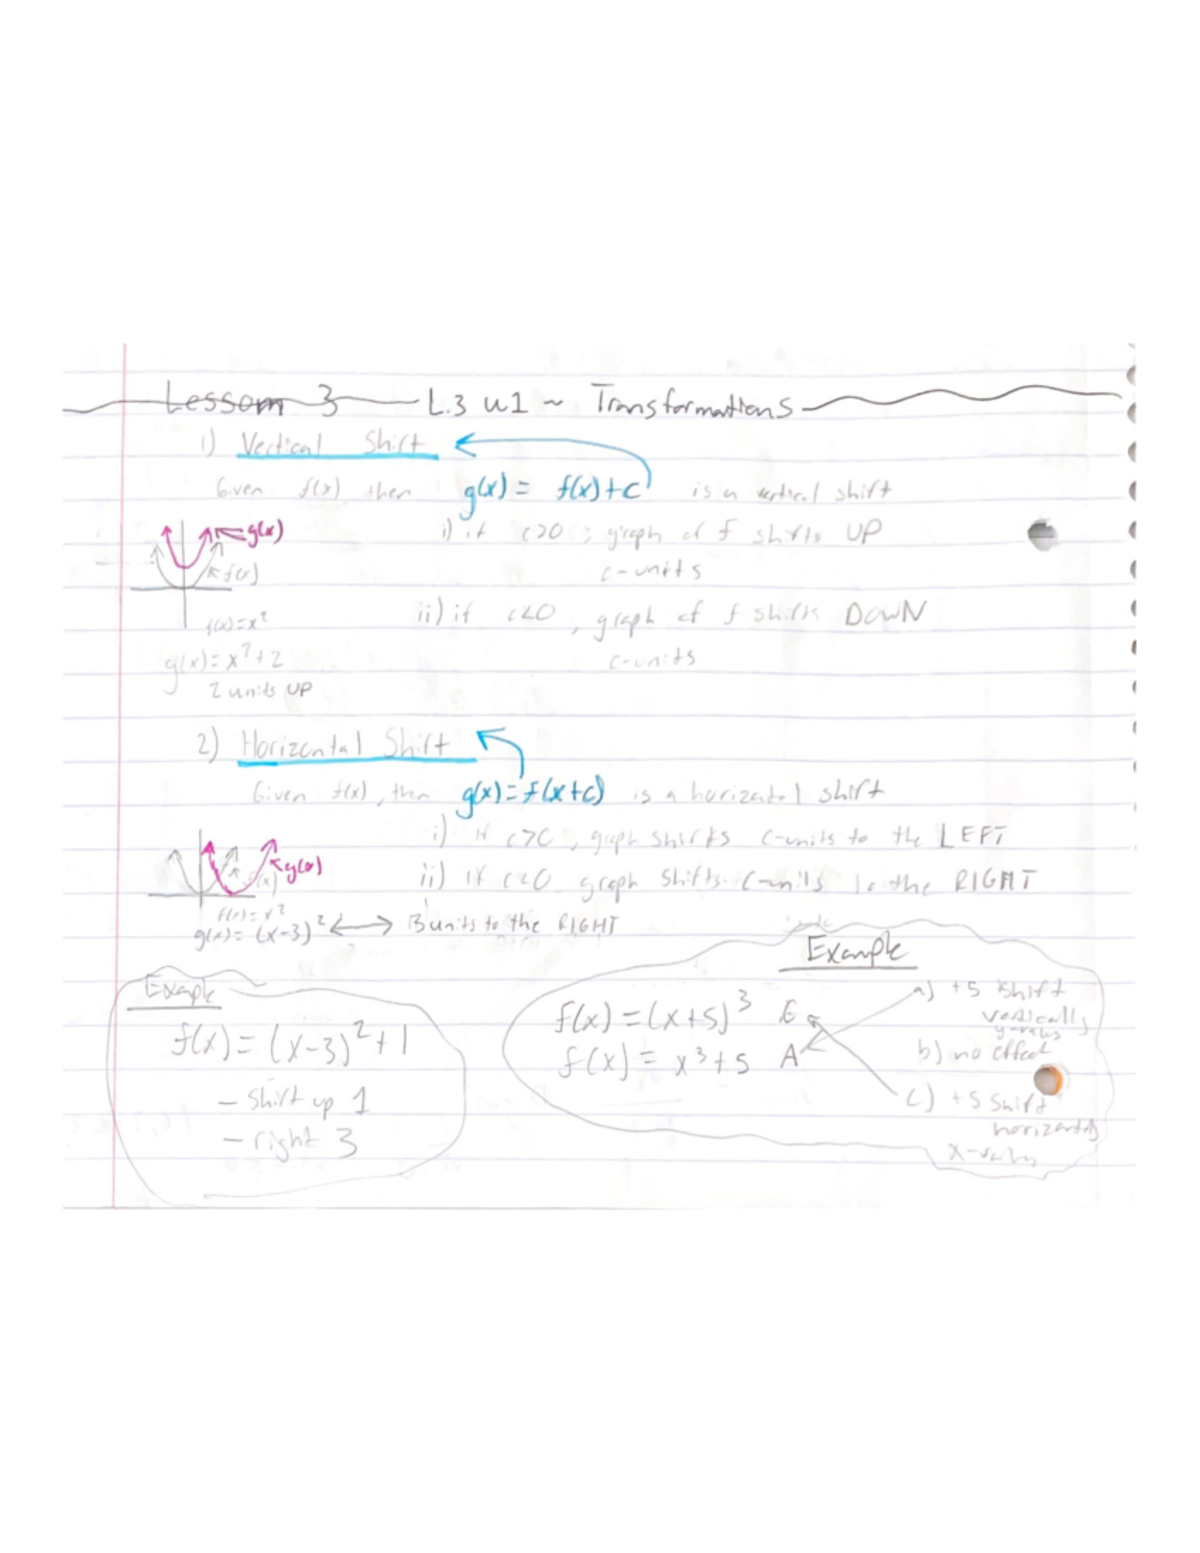 Lesson 3 L.3 U1 ~ Transformations
1) Vertical Shift
Given f(x) then g(x) = f(x)+c is a vertical shift
g(x)
i) if c>0 ; graph of f shifts UP
f(x)
c-units
f(x)=x²
ii) if c<0 , graph of f shifts DOWN
g(x)=x²+2
c-units
2 units UP
2) Horizontal Shift
Given f(x), then g(x)=f(x+c) is a horizontal shift
i) if c>0, graph shifts c-units to the LEFT
g(x)
f(x)
ii) if c<0 graph shifts c-units to the RIGHT
f(x)=x²
g(x)=(x-3)² 3 units to the RIGHT
Example
f(x)=(x-3)²+1
- shift up 1
- right 3
Example
f(x)=(x+5)³
f(x)= x³+5 A
a) +5 shift
vertically
b) no effect
c) +5 shift